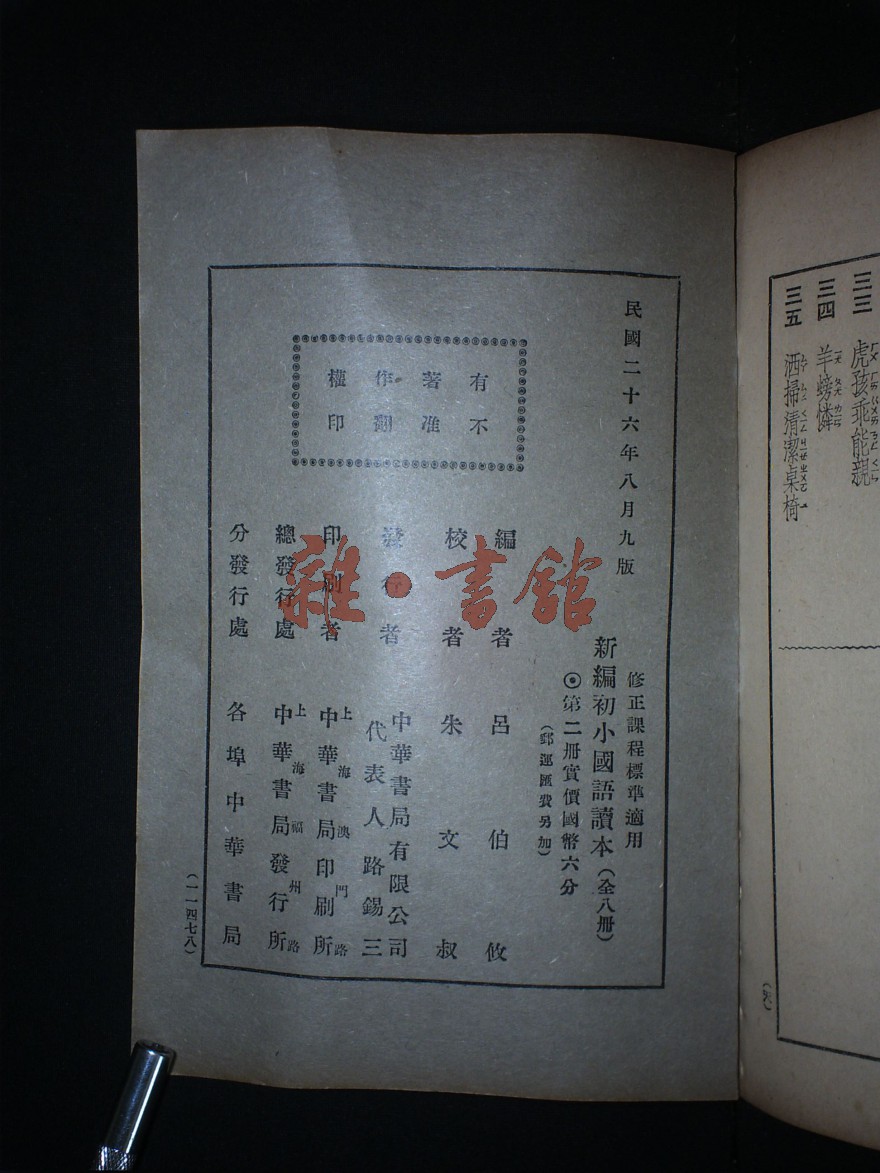 三三 虎孩乖能親
三四 羊螃憐
三五 洒掃清潔桌椅
民國二十六年八月九版
修正課程標準適用
新編初小國語讀本（全八冊）
◉第二冊實價國幣六分
（郵運匯費另加）
有著作權
不准翻印
編者 呂伯攸
校者 朱文叔
發行者 中華書局有限公司
代表人路錫三
印刷者 上海澳門路
中華書局印刷所
總發行處 上海福州路
中華書局發行所
分發行處 各埠中華書局
（一一四七八）
雜·書館